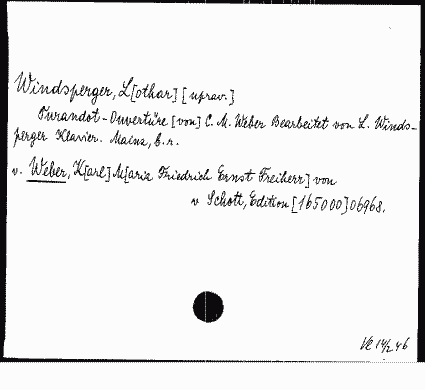 Windsperger, L[othar] [uprav.]
Turandot-Ouvertüre [von] C. M. Weber Bearbeitet von L. Winds-
perger Klavier. Mainz, b.r.
v. Weber, K[arl] M[aria Friedrich Ernst Freiherr] von
v Schott, Edition [165000] 06968.
Ve 14/2 46